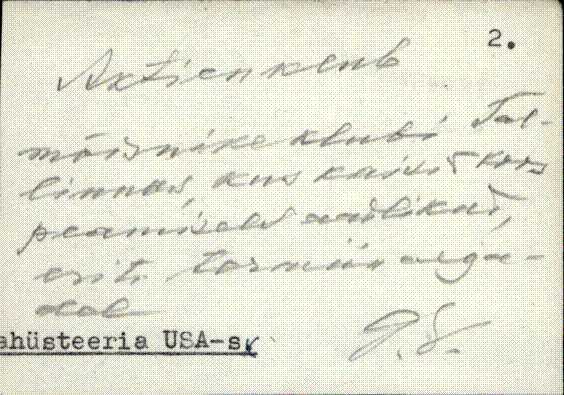 2.
Aktienklub
mõisnike klubi Tal-
linnas, kus käisid koos
peamiselt aadlikud,
erit. 
dal
ahüsteeria USA-s